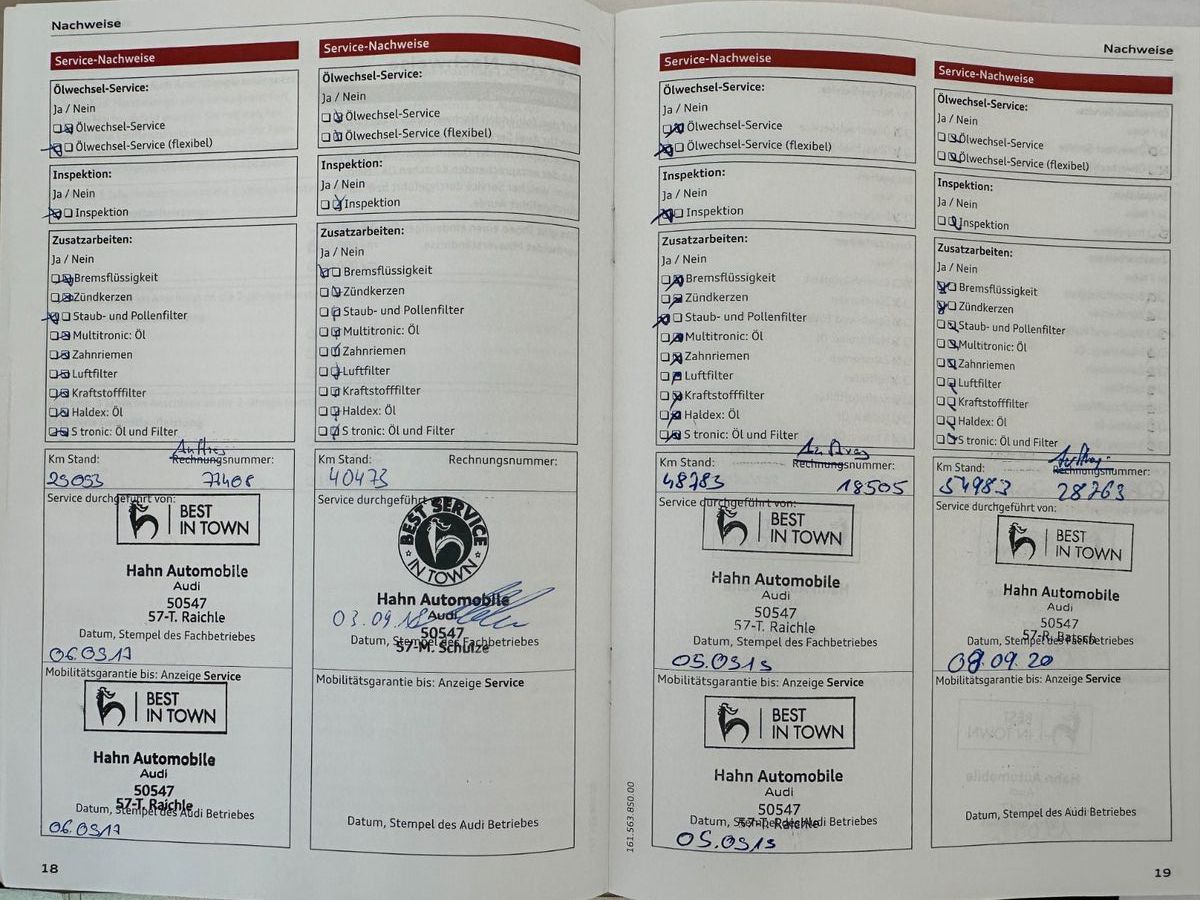 Nachweise
Service-Nachweise
Ölwechsel-Service:
Ja / Nein
Ölwechsel-Service
Ölwechsel-Service (flexibel)
Inspektion:
Ja / Nein
Inspektion
Zusatzarbeiten:
Ja / Nein
Bremsflüssigkeit
Zündkerzen
Staub- und Pollenfilter
Multitronic: Öl
Zahnriemen
Luftfilter
Kraftstofffilter
Haldex: Öl
S tronic: Öl und Filter
Auftrag
Km Stand: Rechnungsnummer:
29053 77408
Service durchgeführt von:
BEST
IN TOWN
Hahn Automobile
Audi
50547
57-T. Raichle
Datum, Stempel des Fachbetriebes
06.09.17
Mobilitätsgarantie bis: Anzeige Service
BEST
IN TOWN
Hahn Automobile
Audi
50547
57-T. Raichle
Datum, Stempel des Audi Betriebes
06.09.17
18
Service-Nachweise
Ölwechsel-Service:
Ja / Nein
Ölwechsel-Service
Ölwechsel-Service (flexibel)
Inspektion:
Ja / Nein
Inspektion
Zusatzarbeiten:
Ja / Nein
Bremsflüssigkeit
Zündkerzen
Staub- und Pollenfilter
Multitronic: Öl
Zahnriemen
Luftfilter
Kraftstofffilter
Haldex: Öl
S tronic: Öl und Filter
Km Stand: Rechnungsnummer:
40473
Service durchgeführt
BEST SERVICE
IN TOWN
Hahn Automobile
Audi
03.09.18
50547
Datum, Stempel des Fachbetriebes
57-M. Schulze
Mobilitätsgarantie bis: Anzeige Service
Datum, Stempel des Audi Betriebes
Nachweise
Service-Nachweise
Ölwechsel-Service:
Ja / Nein
Ölwechsel-Service
Ölwechsel-Service (flexibel)
Inspektion:
Ja / Nein
Inspektion
Zusatzarbeiten:
Ja / Nein
Bremsflüssigkeit
Zündkerzen
Staub- und Pollenfilter
Multitronic: Öl
Zahnriemen
Luftfilter
Kraftstofffilter
Haldex: Öl
S tronic: Öl und Filter
Auftrag
Km Stand: Rechnungsnummer:
48783 18505
Service durchgeführt von:
BEST
IN TOWN
Hahn Automobile
Audi
50547
57-T. Raichle
Datum, Stempel des Fachbetriebes
05.09.19
Mobilitätsgarantie bis: Anzeige Service
BEST
IN TOWN
Hahn Automobile
Audi
50547
57-T. Raichle
Datum, Stempel des Audi Betriebes
05.09.19
161.563.850.00
Service-Nachweise
Ölwechsel-Service:
Ja / Nein
Ölwechsel-Service
Ölwechsel-Service (flexibel)
Inspektion:
Ja / Nein
Inspektion
Zusatzarbeiten:
Ja / Nein
Bremsflüssigkeit
Zündkerzen
Staub- und Pollenfilter
Multitronic: Öl
Zahnriemen
Luftfilter
Kraftstofffilter
Haldex: Öl
S tronic: Öl und Filter
Auftrag
Km Stand: Rechnungsnummer:
54983 28763
Service durchgeführt von:
BEST
IN TOWN
Hahn Automobile
Audi
50547
57-R. Batsch
Datum, Stempel des Fachbetriebes
08.09.20
Mobilitätsgarantie bis: Anzeige Service
Datum, Stempel des Audi Betriebes
19